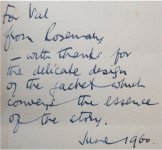 For Val
from Rosemary
– with thanks for
the delicate design
of the jacket which
conveys the essence
of the story.
June 1960.